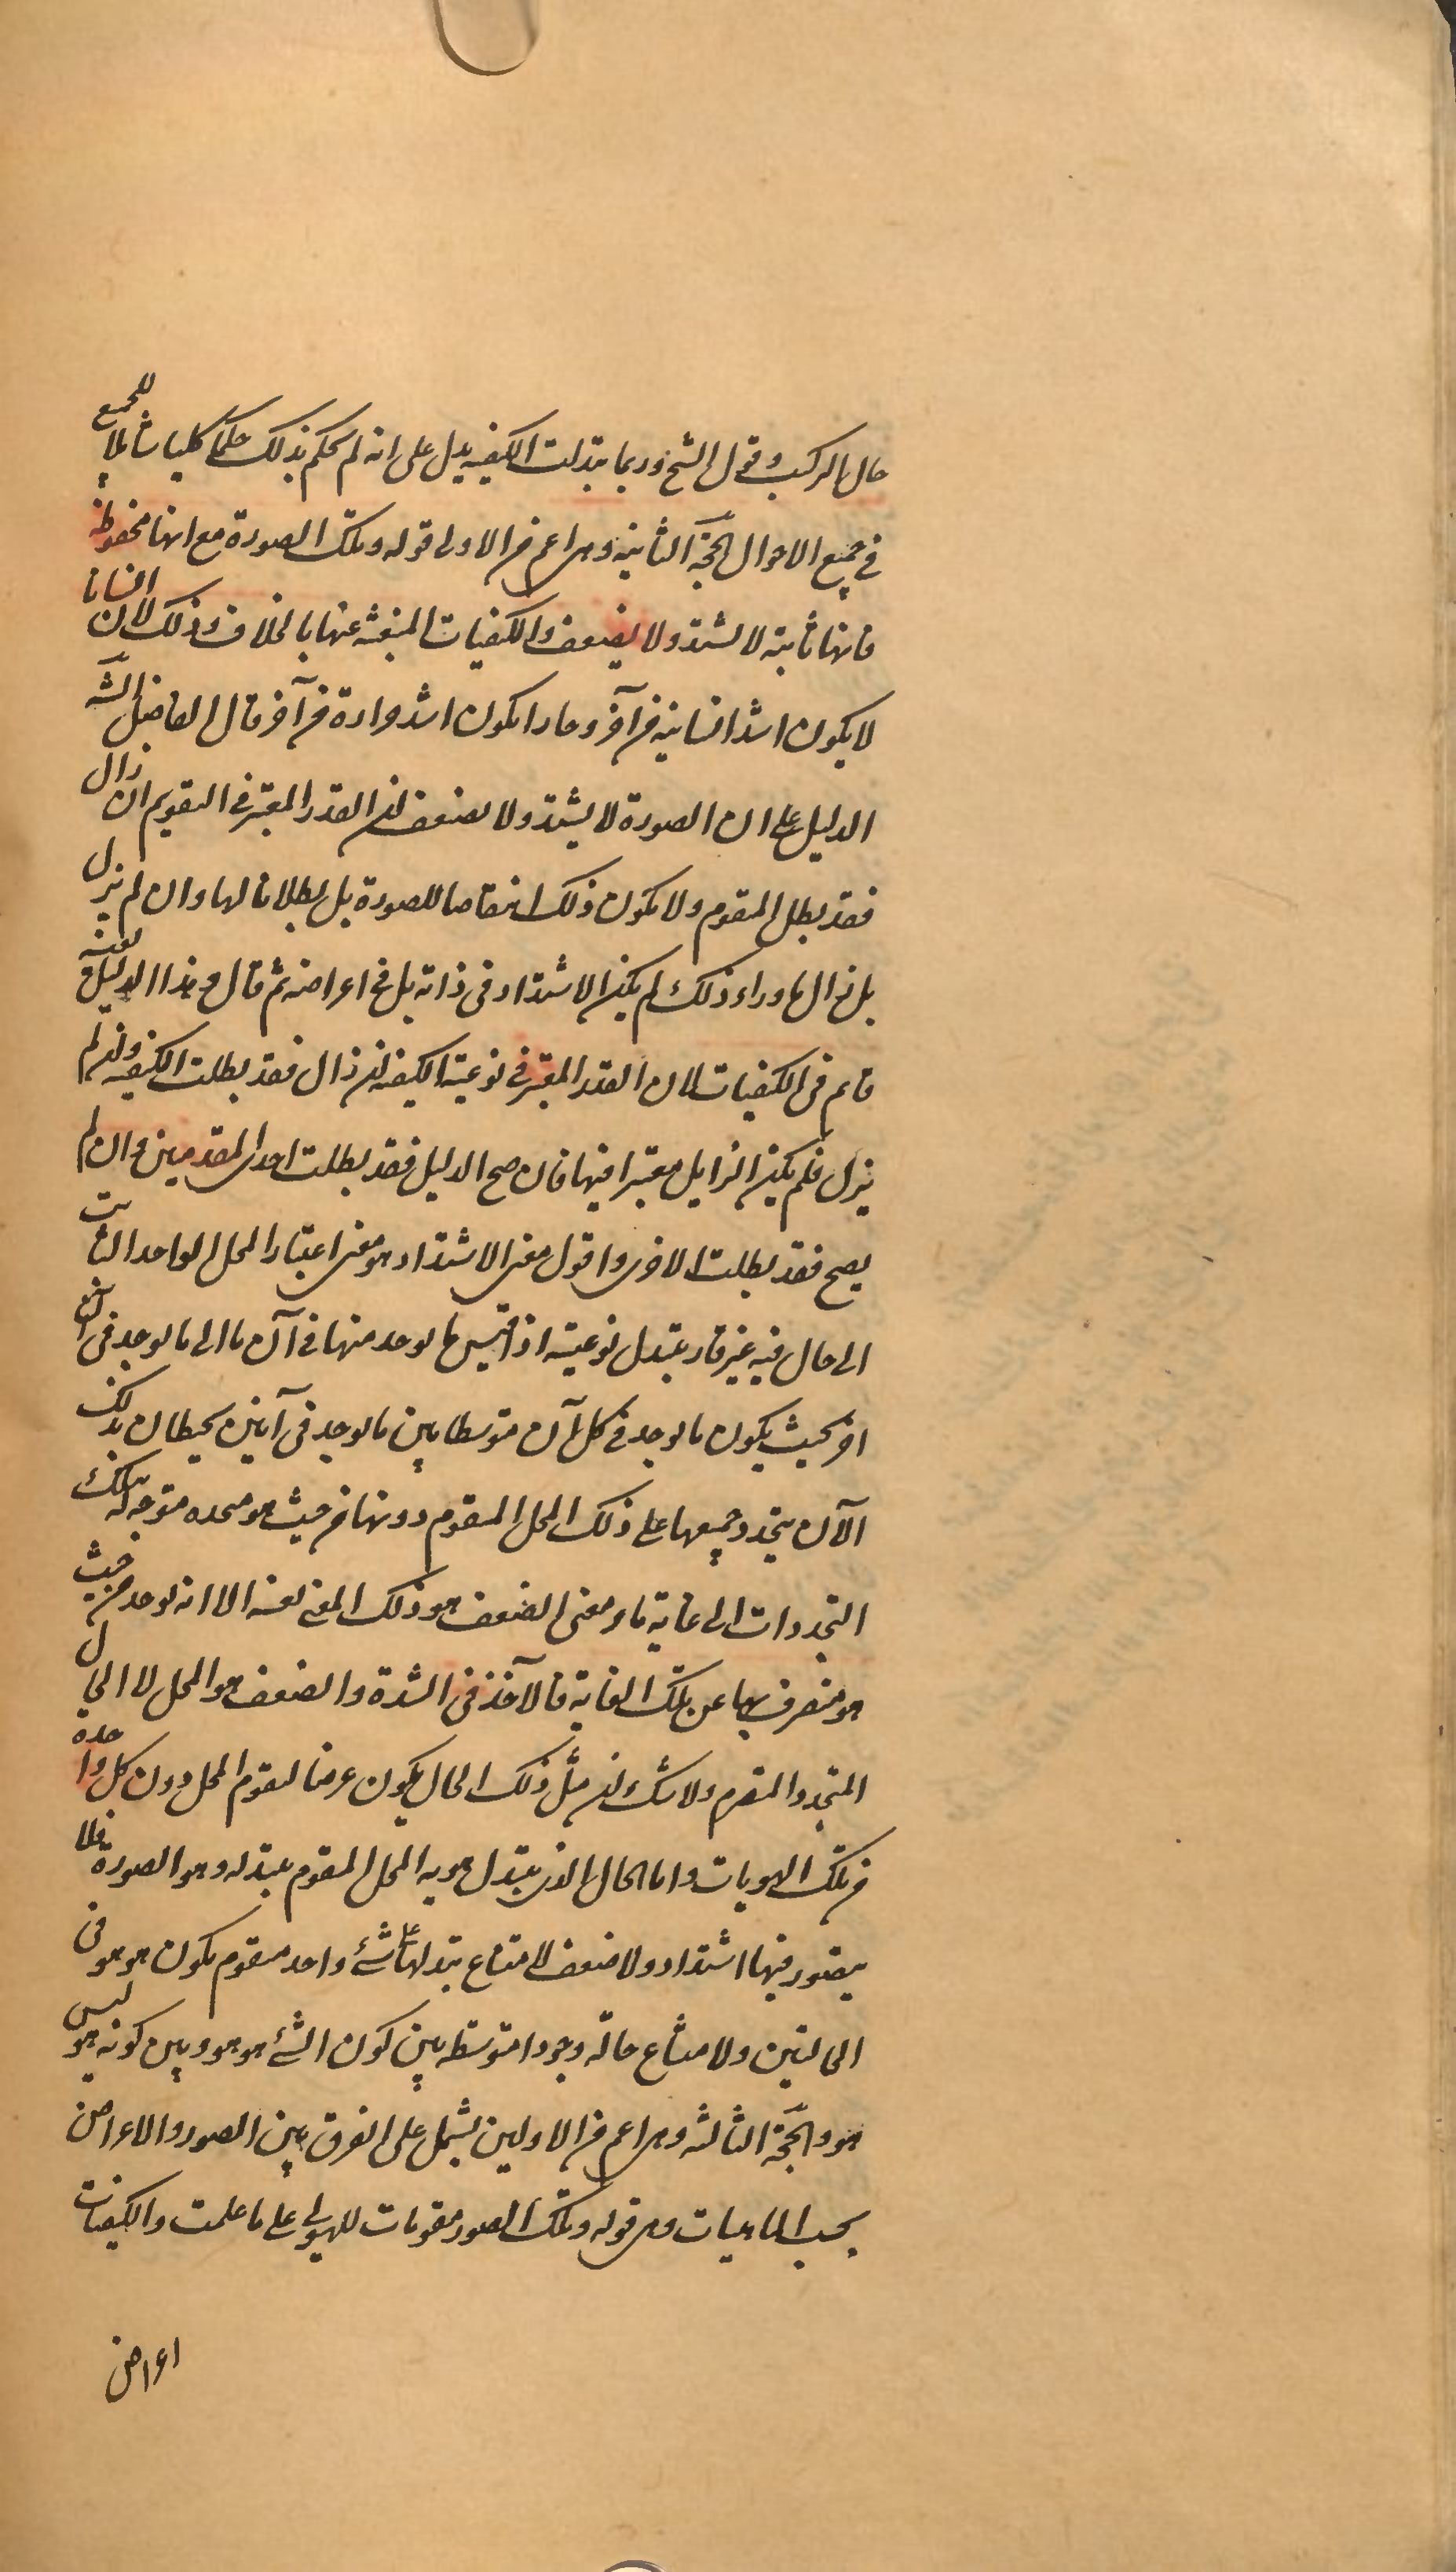 حال التركيب وقول الشيخ وربما تبدلت الكيفية يدل على انه لم يحكم بذلك حكما كليا شاملا للجميع
في جميع الاحوال الحجة الثانية وهى اعم من الاولى قوله وتلك الصورة مع انها محفوظة
فانها ثابتة لا تشتد ولا يضعف والكيفيات المنبعثة عنها بالخلاف وذلك لان انسانا
لا يكون اشد انسانية من آخر وحارا يكون اشد حرارة من آخر قال الفاضل الشه
الدليل على ان الصورة لا يشتد ولا يضعف ان القدر المعتبر في التقويم ان زال
فقد بطل المقوم ولا يكون ذلك انتقاصا للصورة بل بطلانا لها وان لم يزل
بل زال ما وراء ذلك لم يكن الاشتداد في ذاته بل في اعراضه ثم قال وهذا الدليل بعينه
قائم في الكيفيات لان القدر المعتبر في نوعية الكيفية ان زال فقد بطلت الكيفية وان لم
يزل فلم يكن الزايل معتبرا فيها فان صح الدليل فقد بطلت احدى المقدمتين وان لم
يصح فقد بطلت الاخرى واقول معنى الاشتداد هو معنى اعتبار المحل الواحد الثابت
الى حال فيه غير قار يتبدل نوعيته اذا قيس ما يوجد منها في آن ما الى ما يوجد في آن
اخر بحيث يكون ما يوجد في كل آن متوسطا بين ما يوجد في آنين يحيطان بذلك
الآن يتجدد جميعها على ذلك المحل المتقوم دونها من حيث هو متوجه بتلك
التجددات الى غاية ما ومعنى الضعف هو ذلك المعنى بعينه الا انه يوجد من حيث
هو منصرف بها عن تلك الغاية فالآخذ في الشدة والضعف هو المحل لا الحال
المتجدد المتصرم ولا شك ان مثل ذلك الحال يكون عرضا لتقوم المحل دون كل واحدة
من تلك الهويات واما الحال الذى يتبدل هوية المحل المتقوم بتبدله وهو الصورة فلا
يتصور فيها اشتداد ولا ضعف لامتناع تبدلها على شئ واحد متقوم يكون هو هو في
الحالتين ولامتناع حالة وجود متوسطة بين كون الشئ هو هو وبين كونه ليس هو
هو والحجة الثالثة وهى اعم من الاوليين يشتمل على الفرق بين الصور والاعراض
بحسب الماهيات وهى قوله وتلك الصور مقومات للهيولى على ما علمت والكيفيات
اعراض